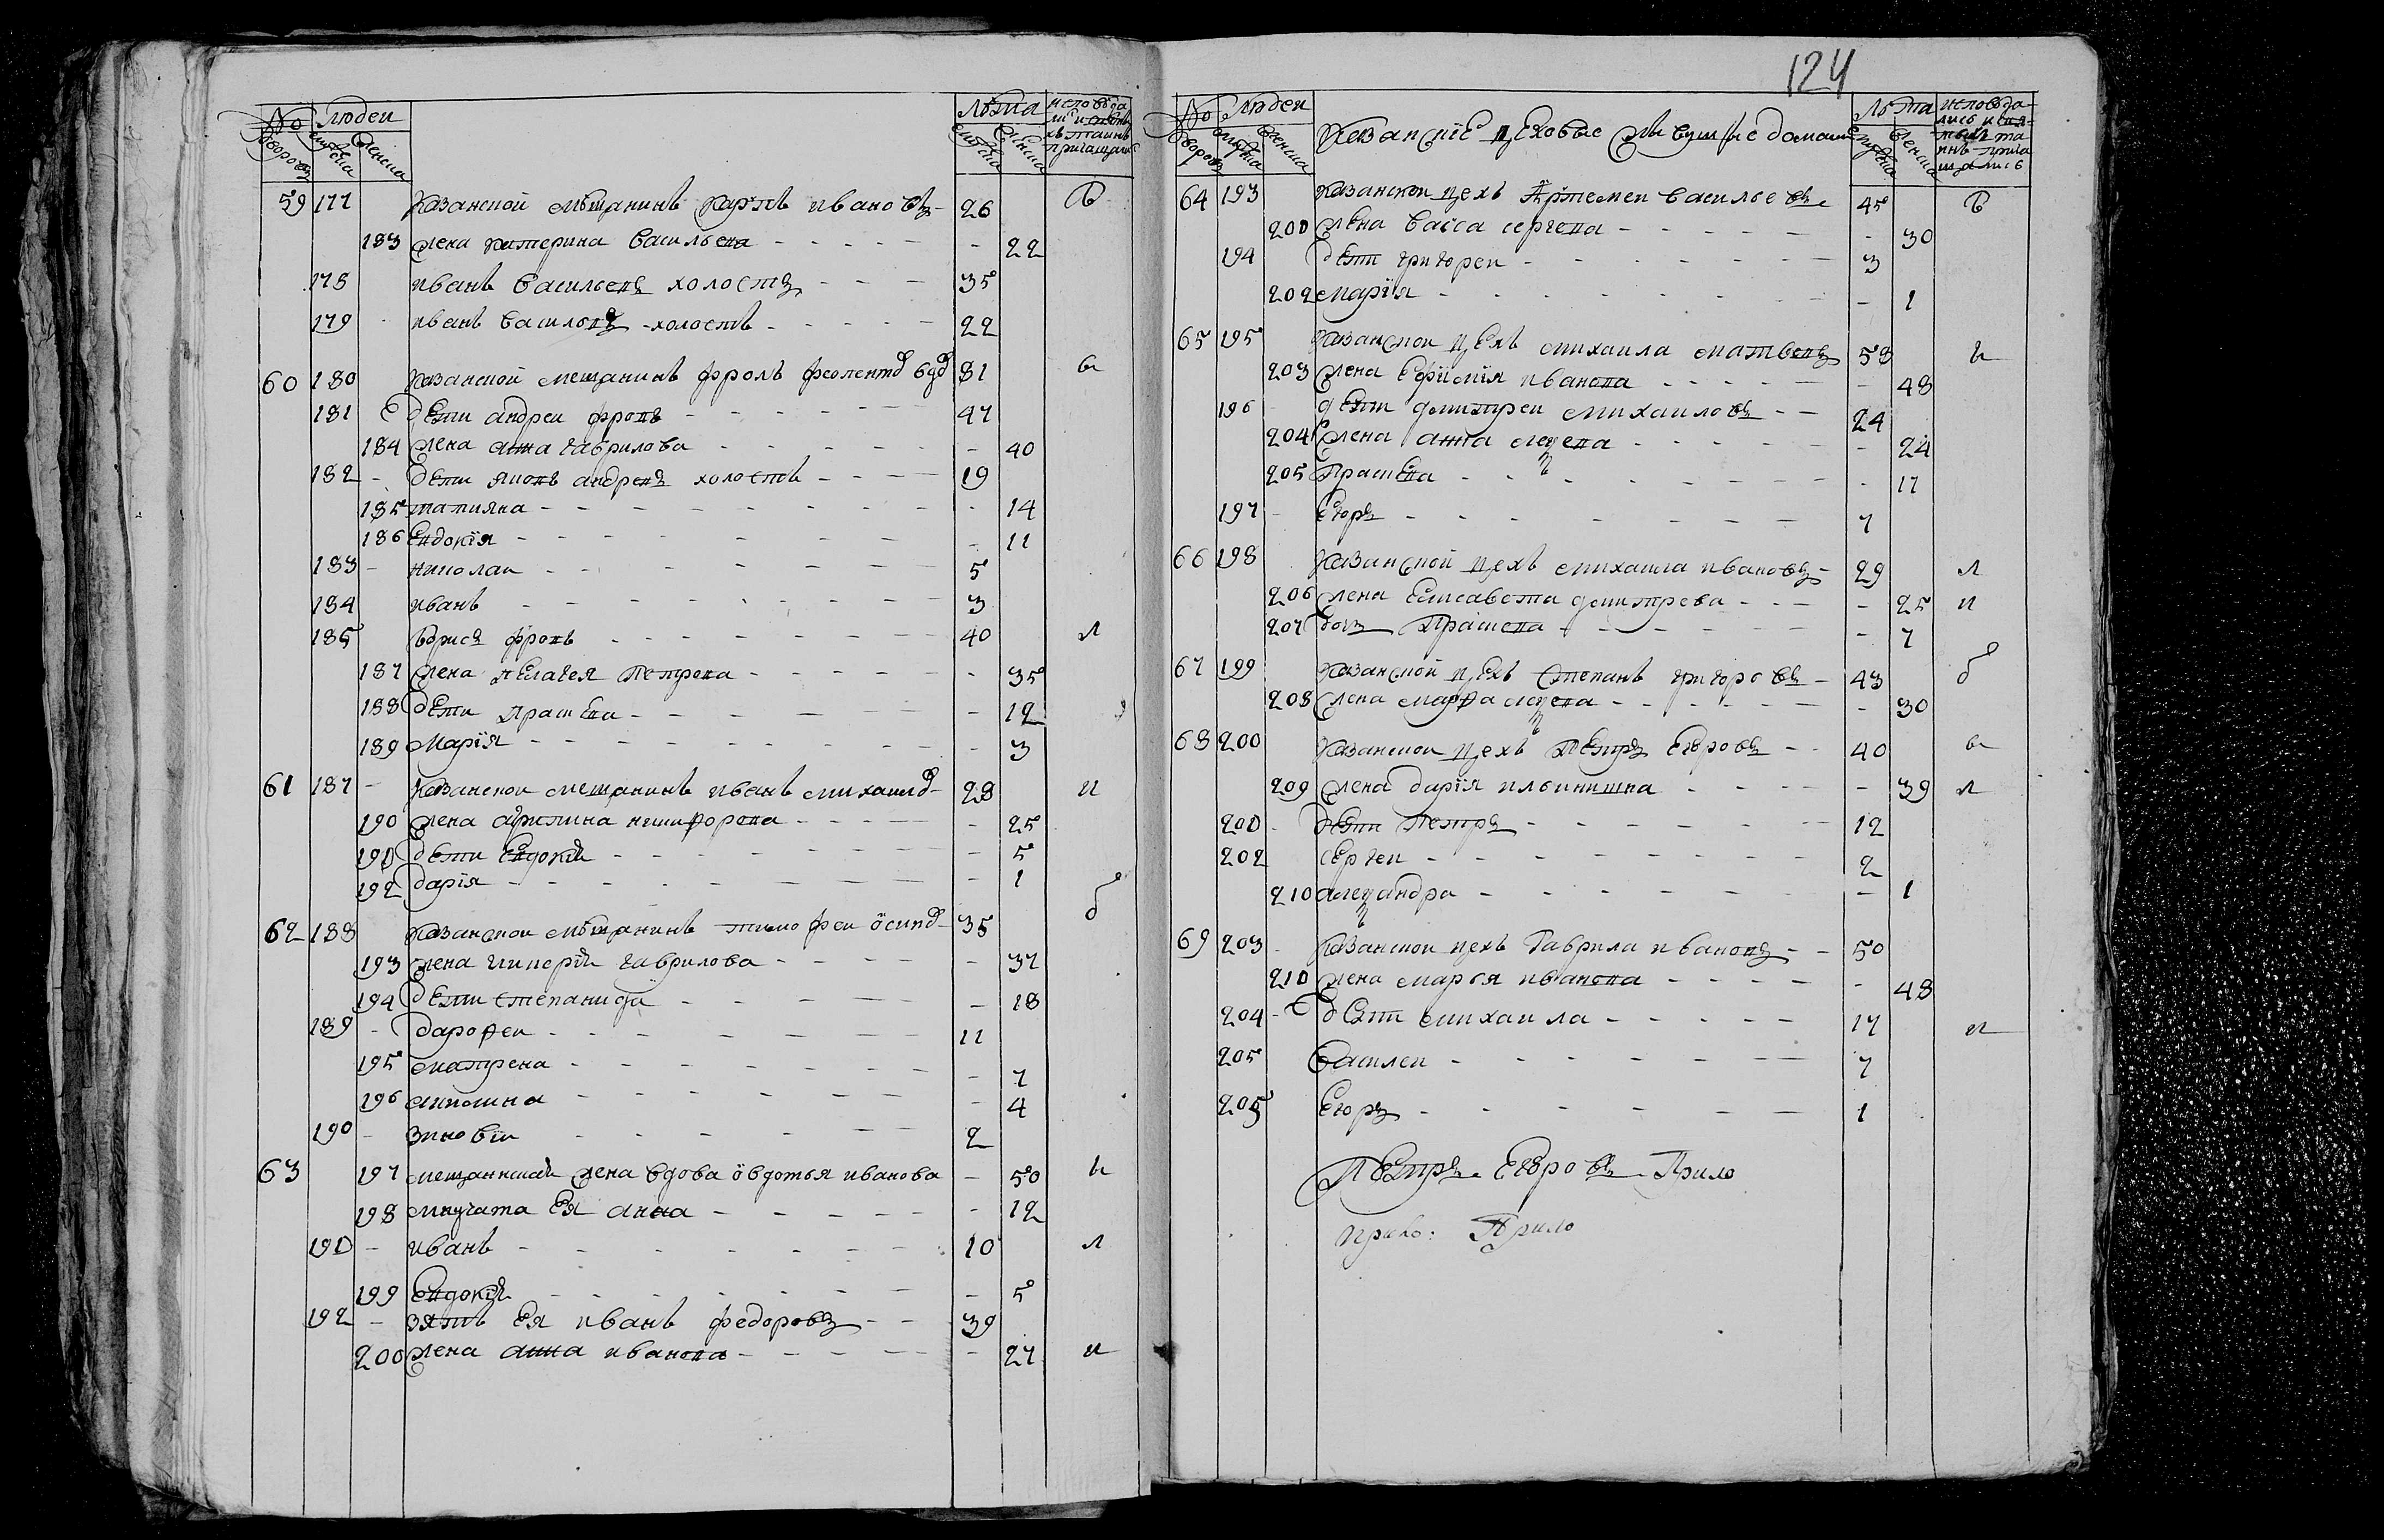 № дворовъ Людеи мужеска женска Лѣта мужска женска исповѣдались и святыхъ таинъ причащались
59 177 Казанской мѣщанинъ Карпъ Ивановъ 26 В
183 жена Катерина Васильева 22
178 иванъ Васильевъ холостъ 35
179 иванъ Василевъ холостъ 22
60 180 Казанской мещанинъ Фролъ вдо 81
181 дѣти андреи Фроловъ 47
184 жена анна гаврилова 40
182 дѣти яковъ андреевъ холостъ 19
185 татияна 14
186 Евдокїя 11
183 николаи 5
184 иванъ 3
185 борисъ Фроловъ 40 л
187 жена пелагея Петрова 35
188 дѣти прасковя 12
189 Марїя 3
61 187 Казанской мещанинъ иванъ михаило 28 и
190 жена акулина никифорова 25
191 дѣти Евдокїя 5
192 дарїя 1
62 188 Казанской мѣщанинъ тимофеи осипо 35 б
193 жена гликерїя гаврилова 37
194 дѣти степанида 18
189 дарофеи 11
195 матрена 7
196 акилина 4
190 зиновїи 2
63 197 мещанская жена вдова овдотья иванова 50
198 внучата Ея анна 12
191 иванъ 10 л
199 Евдокїя 5
192 зять Ея иванъ федоровъ 39
200 жена анна иванова 27 и
124
№ дворовъ Людеи мужеска женска Казанскїе цеховые живущїе домами Лѣта мужска женска исповѣдались и святыхъ таинъ причащались
64 193 Казанской цехъ Артемеи васильевъ 45 В
201 жена васса сергева 30
194 дѣти григореи 3
202 марїя 1
65 195 Казанской цехъ михаила матвевъ 58
203 жена Ефимїя иванова 48
196 дѣти дмитреи михаиловъ 24
204 жена анна алексева 24
205 Прасковя 17
197 Егоръ 7
66 198 Казанской цехъ михаила ивановъ 29 л
206 жена Елисавета дмитрева 25 и
207 дочь Прасковя 7
67 199 Казанской цехъ степанъ григоровъ 43 б
208 жена марфа алексева 30
68 200 Казанской цехъ Петръ Егоровъ 40
209 жена дарїя ильинишна 39 л
201 дѣти Петръ 12
202 сергеи 2
210 александра 1
69 203 Казанской цехъ Гаврила ивановъ 50
211 жена марья иванова 48
204 дѣти михаила 17 и
205 василеи 7
205 Егоръ 1
Петръ Егоровъ Прило
прило: Прило